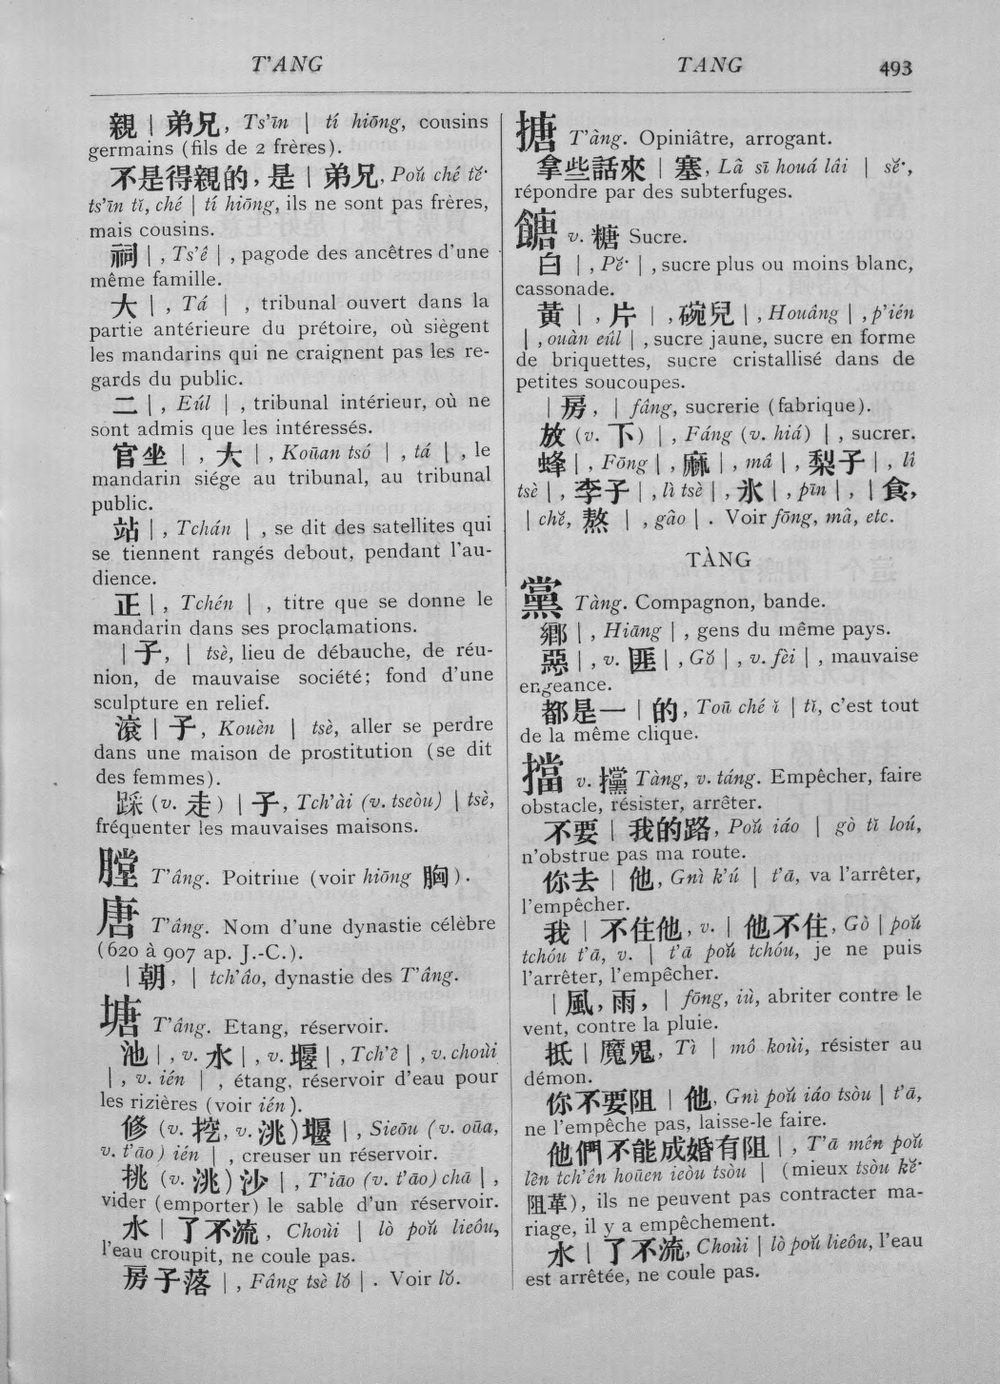 T'ANG
TANG
493
親 | 弟兄, Ts'īn | tí hiōng, cousins
germains (fils de 2 frères).
不是得親的, 是 | 弟兄, Poŭ ché tĕ·
ts'īn tĭ, ché | tí hiōng, ils ne sont pas frères,
mais cousins.
祠 | , Ts'ê | , pagode des ancêtres d'une
même famille.
大 | , Tá | , tribunal ouvert dans la
partie antérieure du prétoire, où siègent
les mandarins qui ne craignent pas les re-
gards du public.
二 | , Eúl | , tribunal intérieur, où ne
sont admis que les intéressés.
官坐 | , 大 | , Koūan tsó | , tá | , le
mandarin siége au tribunal, au tribunal
public.
站 | , Tchán | , se dit des satellites qui
se tiennent rangés debout, pendant l'au-
dience.
正 | , Tchén | , titre que se donne le
mandarin dans ses proclamations.
| 子, | tsè, lieu de débauche, de réu-
nion, de mauvaise société; fond d'une
sculpture en relief.
滾 | 子, Kouèn | tsè, aller se perdre
dans une maison de prostitution (se dit
des femmes).
踩 (v. 走) | 子, Tch'ài (v. tseòu) | tsè,
fréquenter les mauvaises maisons.
膛 T'âng. Poitrine (voir hiōng 胸).
唐 T'âng. Nom d'une dynastie célèbre
(620 à 907 ap. J.-C.).
| 朝, | tch'âo, dynastie des T'âng.
塘 T'âng. Etang, réservoir.
池 | , v. 水 | , v. 堰 | , Tch'ê | , v. choùi
| , v. ién | , étang, réservoir d'eau pour
les rizières (voir ién).
修 (v. 挖, v. 洮) 堰 | , Sieōu (v. oūa,
v. t'âo) ién | , creuser un réservoir.
挑 (v. 洮) 沙 | , T'iāo (v. t'âo) chā | ,
vider (emporter) le sable d'un réservoir.
水 | 了不流, Choùi | lò poŭ lieôu,
l'eau croupit, ne coule pas.
房子落 | , Fâng tsè lŏ | . Voir lŏ.
搪 T'àng. Opiniâtre, arrogant.
拿些話來 | 塞, Lâ sī houá lâi | sĕ·,
répondre par des subterfuges.
餹 v. 糖 Sucre.
白 | , Pĕ· | , sucre plus ou moins blanc,
cassonade.
黃 | , 片 | , 碗兒 | , Houâng | , p'ién
| , ouàn eúl | , sucre jaune, sucre en forme
de briquettes, sucre cristallisé dans de
petites soucoupes.
| 房, | fâng, sucrerie (fabrique).
放 (v. 下) | , Fáng (v. hiá) | , sucrer.
蜂 | , Fōng | , 麻 | , mâ | , 梨子 | , lî
tsè | , 李子 | , lì tsè | , 氷 | , pīn | , | 食,
| chĕ, 熬 | , gâo | . Voir fōng, mâ, etc.
TÀNG
黨 Tàng. Compagnon, bande.
鄉 | , Hiāng | , gens du même pays.
惡 | , v. 匪 | , Gŏ | , v. fèi | , mauvaise
engeance.
都是一 | 的, Toū ché ĭ | tĭ, c'est tout
de la même clique.
擋 v. 攩 Tàng, v. táng. Empêcher, faire
obstacle, résister, arrêter.
不要 | 我的路, Poŭ iáo | gò tĭ loú,
n'obstrue pas ma route.
你去 | 他, Gnì k'ú | t'ā, va l'arrêter,
l'empêcher.
我 | 不住他, v. | 他不住, Gò | poŭ
tchóu t'ā, v. | t'ā poŭ tchóu, je ne puis
l'arrêter, l'empêcher.
| 風, 雨, | fōng, iù, abriter contre le
vent, contre la pluie.
抵 | 魔鬼, Tì | mô koùi, résister au
démon.
你不要阻 | 他, Gnì poŭ iáo tsòu | t'ā,
ne l'empêche pas, laisse-le faire.
他們不能成婚有阻 | , T'ā mên poŭ
lên tch'ên hoūen ieòu tsòu | (mieux tsòu kĕ·
阻革), ils ne peuvent pas contracter ma-
riage, il y a empêchement.
水 | 了不流, Choùi | lò poŭ lieôu, l'eau
est arrêtée, ne coule pas.